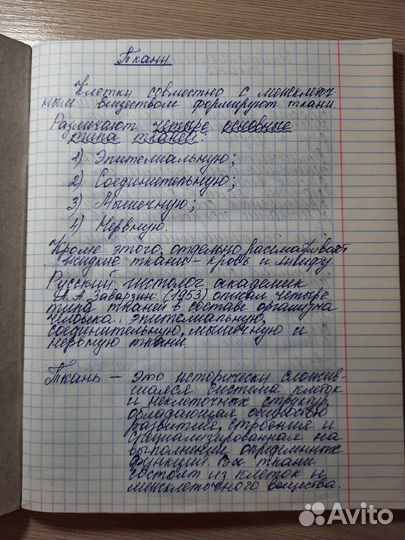 Ткани
Клетки совместно с межклеточ-
ным веществом формируют ткани
Различают четыре основные
типа тканей:
1) Эпителиальную;
2) Соединительную;
3) Мышечную;
4) Нервную.
Кроме этого, отдельно рассматривают
жидкие ткани - кровь и лимфу
Русский гистолог академик
А.А. Заварзин (1953) описал четыре
типа тканей в составе организма
человека: эпителиальную,
соединительную, мышечную и
нервную ткани.
Ткань - это исторически сложив-
шаяся система клеток
и неклеточных структур,
обладающая общностью
развития, строения и
специализированная на
выполнении определенных
функций. Все ткани
состоят из клеток и
межклеточного вещества.
Avito